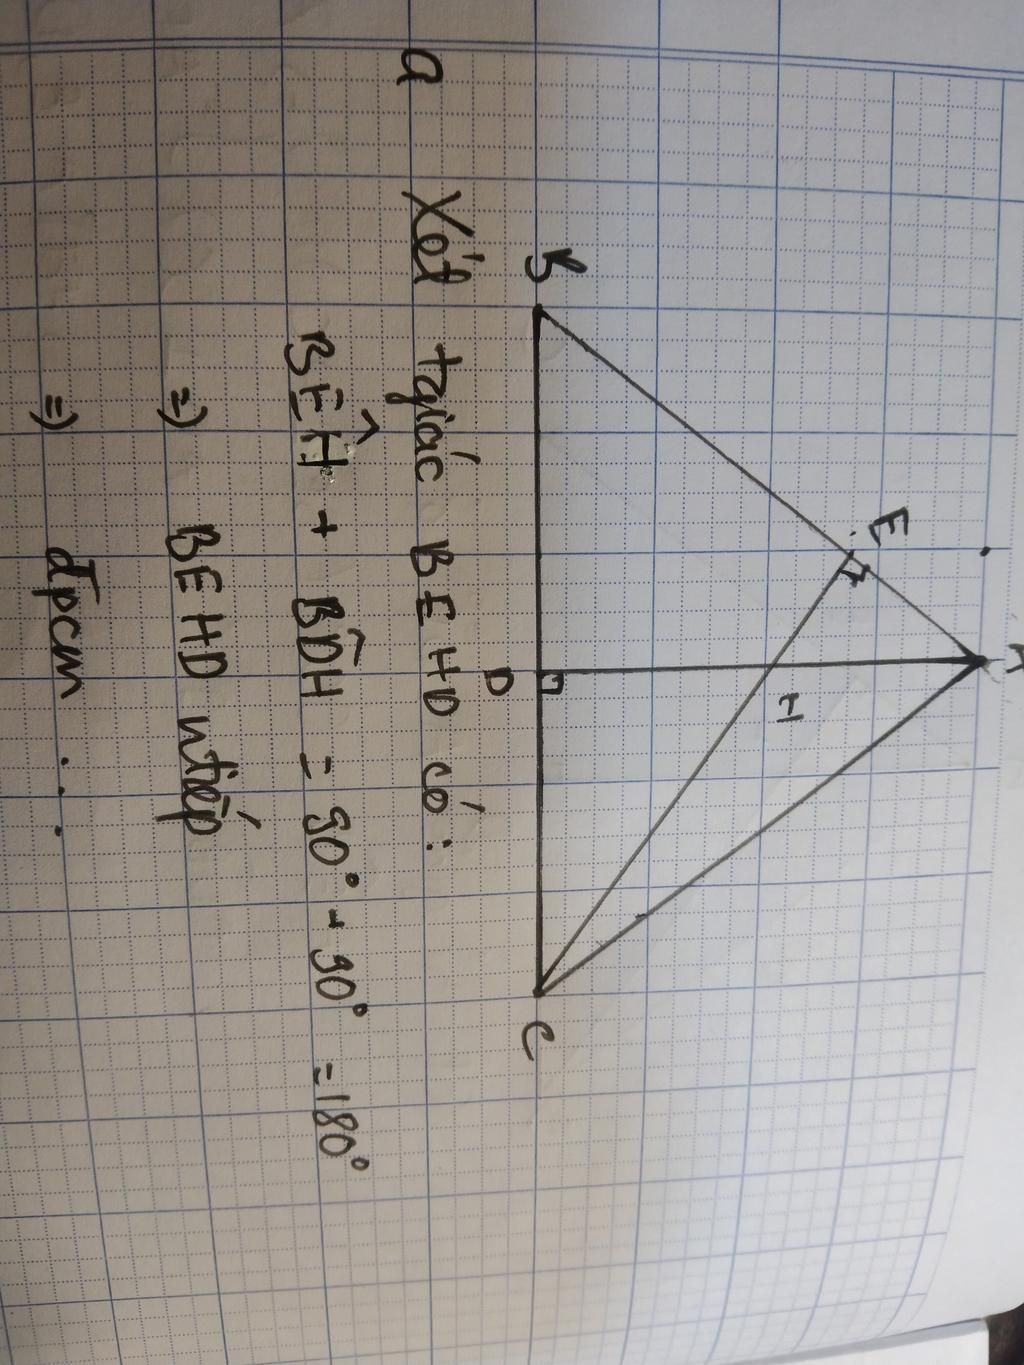 A
E
H
B
D
C
a Xét tgiác BEHD có:
BÊH + BD̂H = 90° + 90° = 180°
=) BEHD ntiếp
=) đpcm . . .